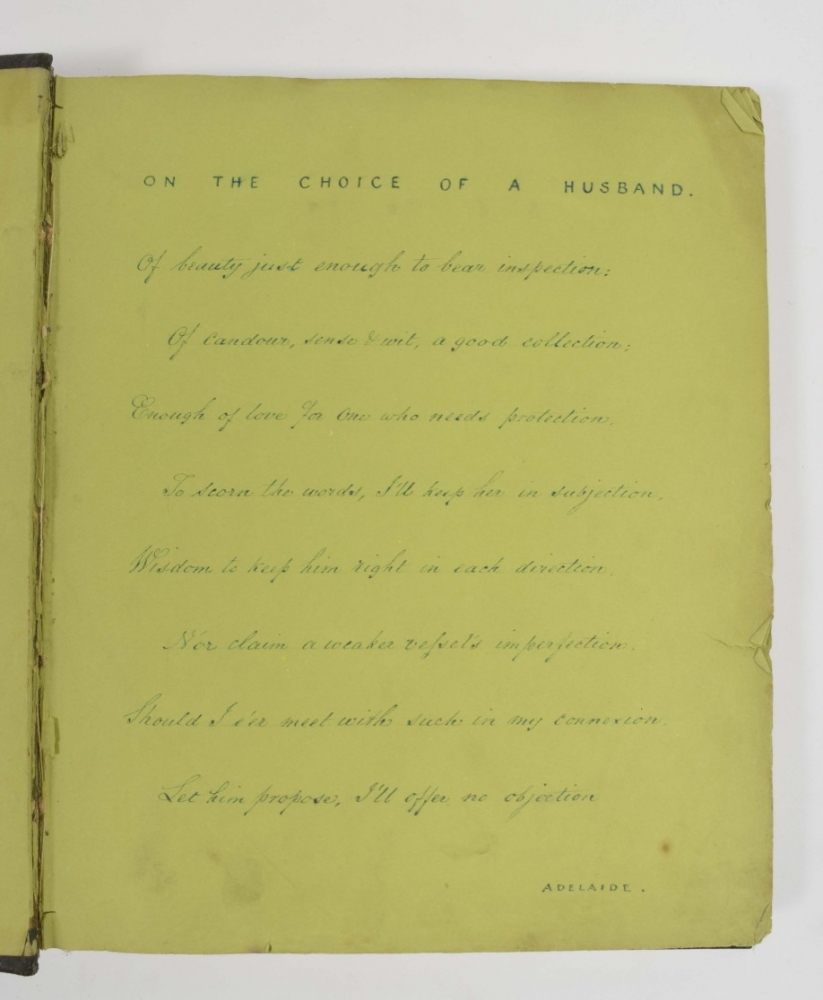 ON THE CHOICE OF A HUSBAND.
Of beauty just enough to bear inspection:
Of candour, sense & wit, a good collection;
Enough of love for one who needs protection,
To scorn the words, I'll keep her in subjection,
Wisdom to keep him right in each direction,
Nor claim a weaker veſsel's imperfection.
Should I e'er meet with such in my connexion.
Let him propose, I'll offer no objection
ADELAIDE.